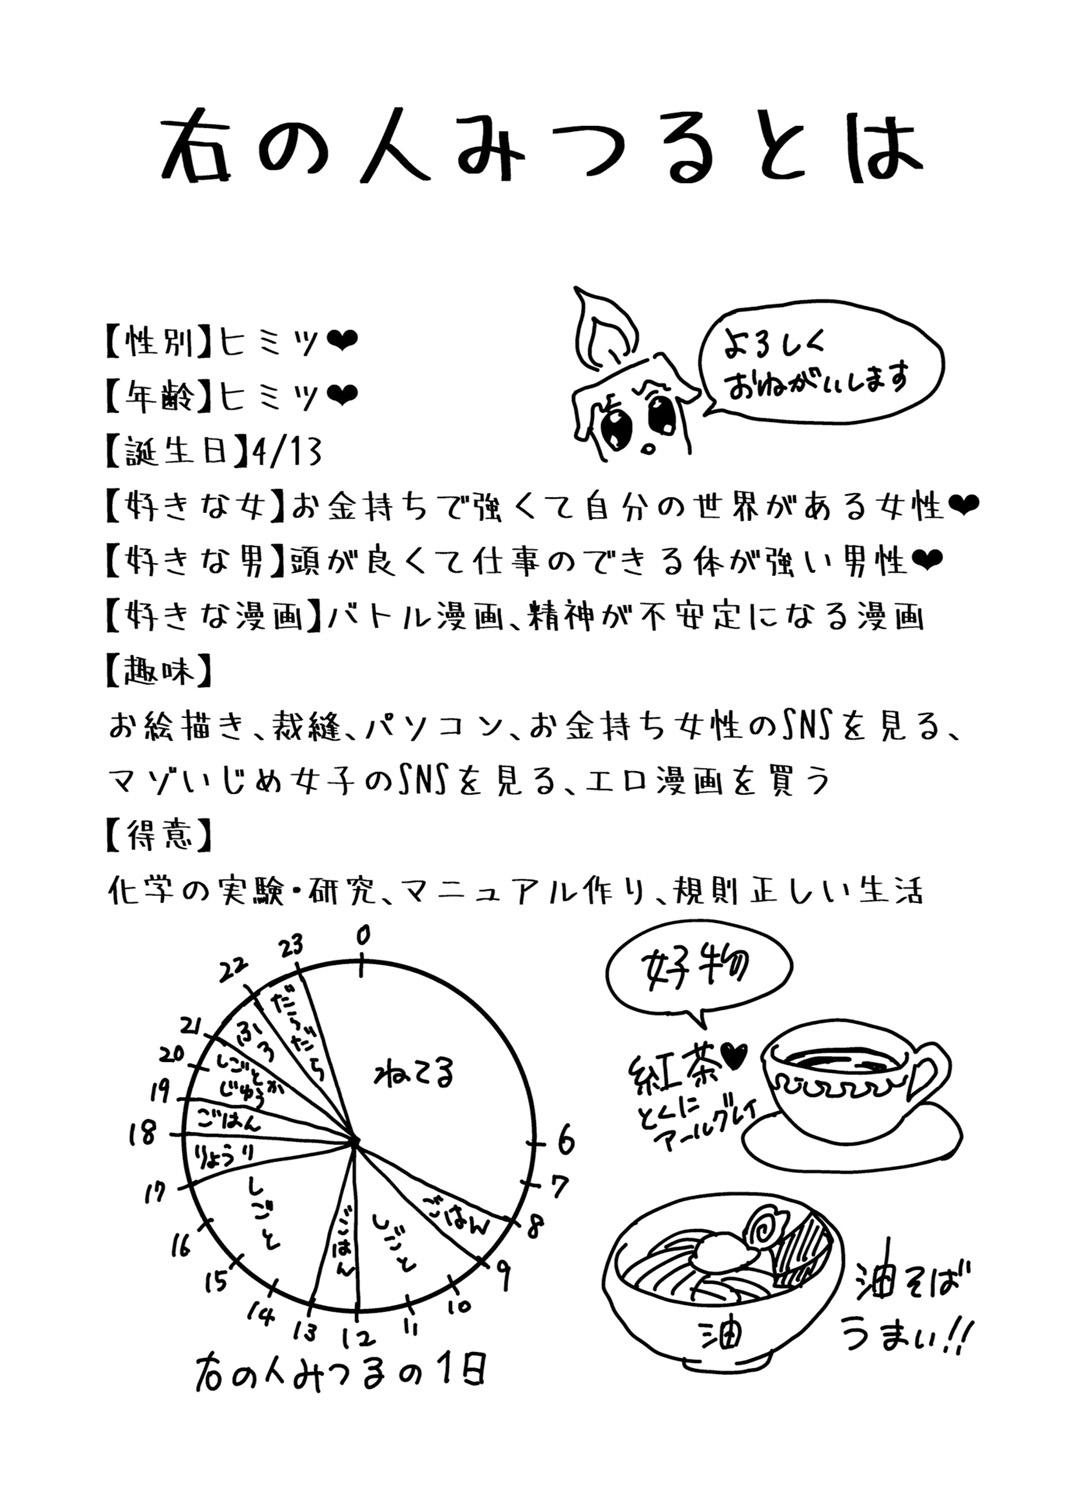 右の人みつるとは
【性別】ヒミツ❤
【年齢】ヒミツ❤
【誕生日】4/13
よろしく
おねがいします
【好きな女】お金持ちで強くて自分の世界がある女性❤
【好きな男】頭が良くて仕事のできる体が強い男性❤
【好きな漫画】バトル漫画、精神が不安定になる漫画
【趣味】
お絵描き、裁縫、パソコン、お金持ち女性のSNSを見る、
マゾいじめ女子のSNSを見る、エロ漫画を買う
【得意】
化学の実験・研究、マニュアル作り、規則正しい生活
0
6
7
8
9
10
11
12
13
14
15
16
17
18
19
20
21
22
23
ねてる
ごはん
しごと
ごはん
しごと
りょうり
ごはん
しごとか
じゅう
ふろ
だらだら
右の人みつるの1日
好物
紅茶♥
とくに
アールグレイ
油
油そば
うまい!!